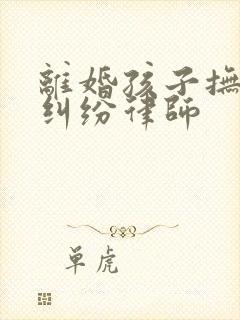 離婚孩子撫
糾纷律師
単虎